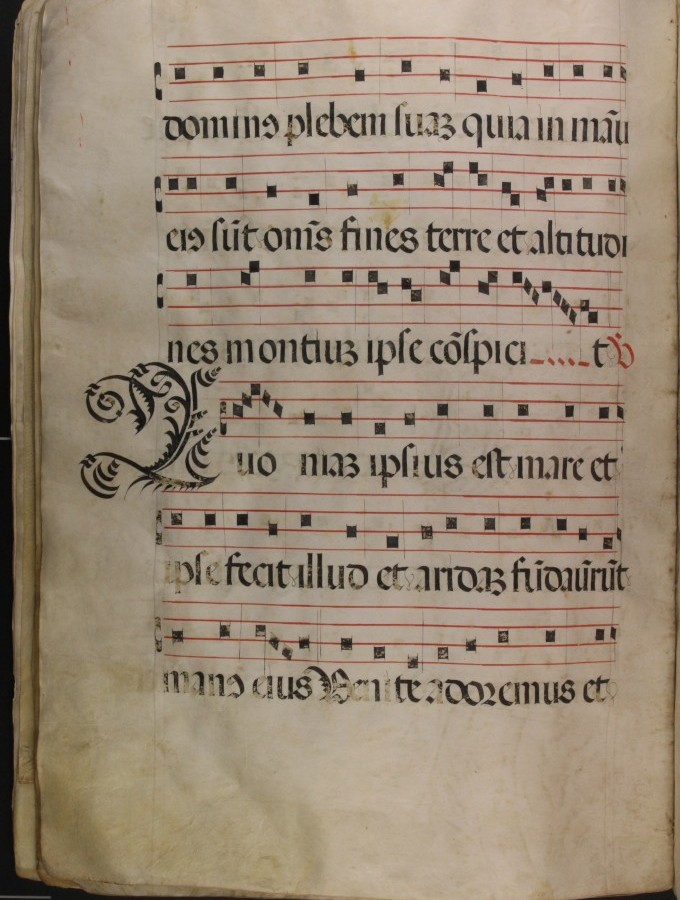 dominꝰ plebem suaꝫ quia in māu
eiꝰ sūt om̄s fines terre et altitudi
nes montiuꝫ ipse cōspici t ℣
Quo niaꝫ ipsius est mare et
ipse fecit illud et aridaꝫ fūdaūrūt
manꝰ eius Venite adoremus et